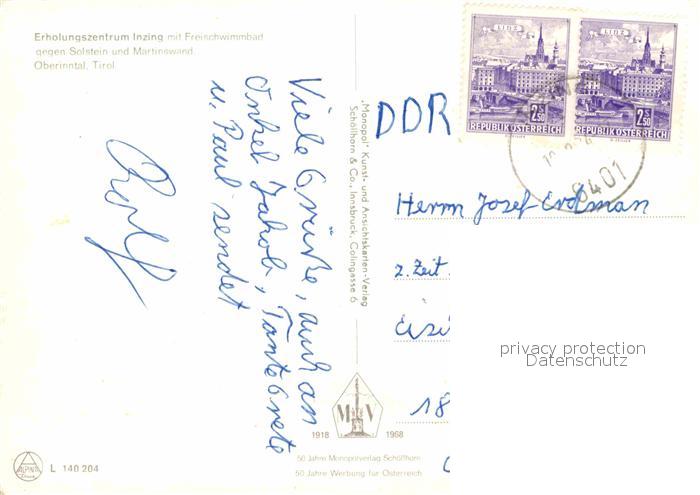 Erholungszentrum Inzing mit Freischwimmbad
gegen Solstein und Martinswand.
Oberinntal, Tirol
Viele Grüße, auch an
Onkel Jakob, Tante Grete
u. Paul sendet
Rolf
"Monopol" Kunst- und Ansichtskarten-Verlag
Schöllhorn & Co., Innsbruck, Colingasse 6
M V
1918 1968
50 Jahre Monopolverlag Schöllhorn
50 Jahre Werbung für Österreich
ALPINA
L 140 204
LINZ
2 S 50
REPUBLIK ÖSTERREICH
LINZ
2 S 50
REPUBLIK ÖSTERREICH
6401
DDR
Herrn Josef Erdman
z. Zeit
18
privacy protection
Datenschutz